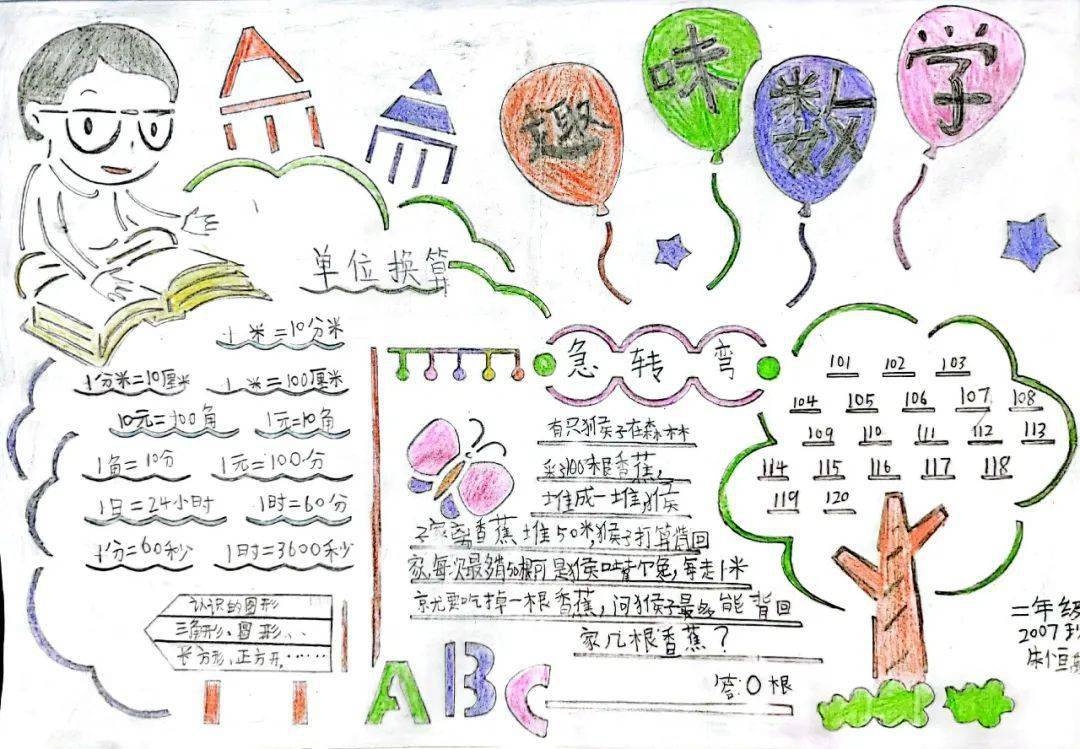 趣味数学
单位换算
1米=10分米
1分米=10厘米 1米=100厘米
10元=100角 1元=10角
1角=10分 1元=100分
1日=24小时 1时=60分
1分=60秒 1时=3600秒
认识的图形
三角形、圆形、..
长方形,正方形......
急转弯
有只猴子在森林
采100根香蕉,
堆成一堆,猴
子家离香蕉堆50米,猴子打算背回
家,每次最多背50根可是猴嘴,每走1米
就要吃掉一根香蕉,问猴子最多能背回
家几根香蕉?
答:0根
101 102 103
104 105 106 107 108
109 110 111 112 113
114 115 116 117 118
119 120
二年级
2007
朱恒
ABC